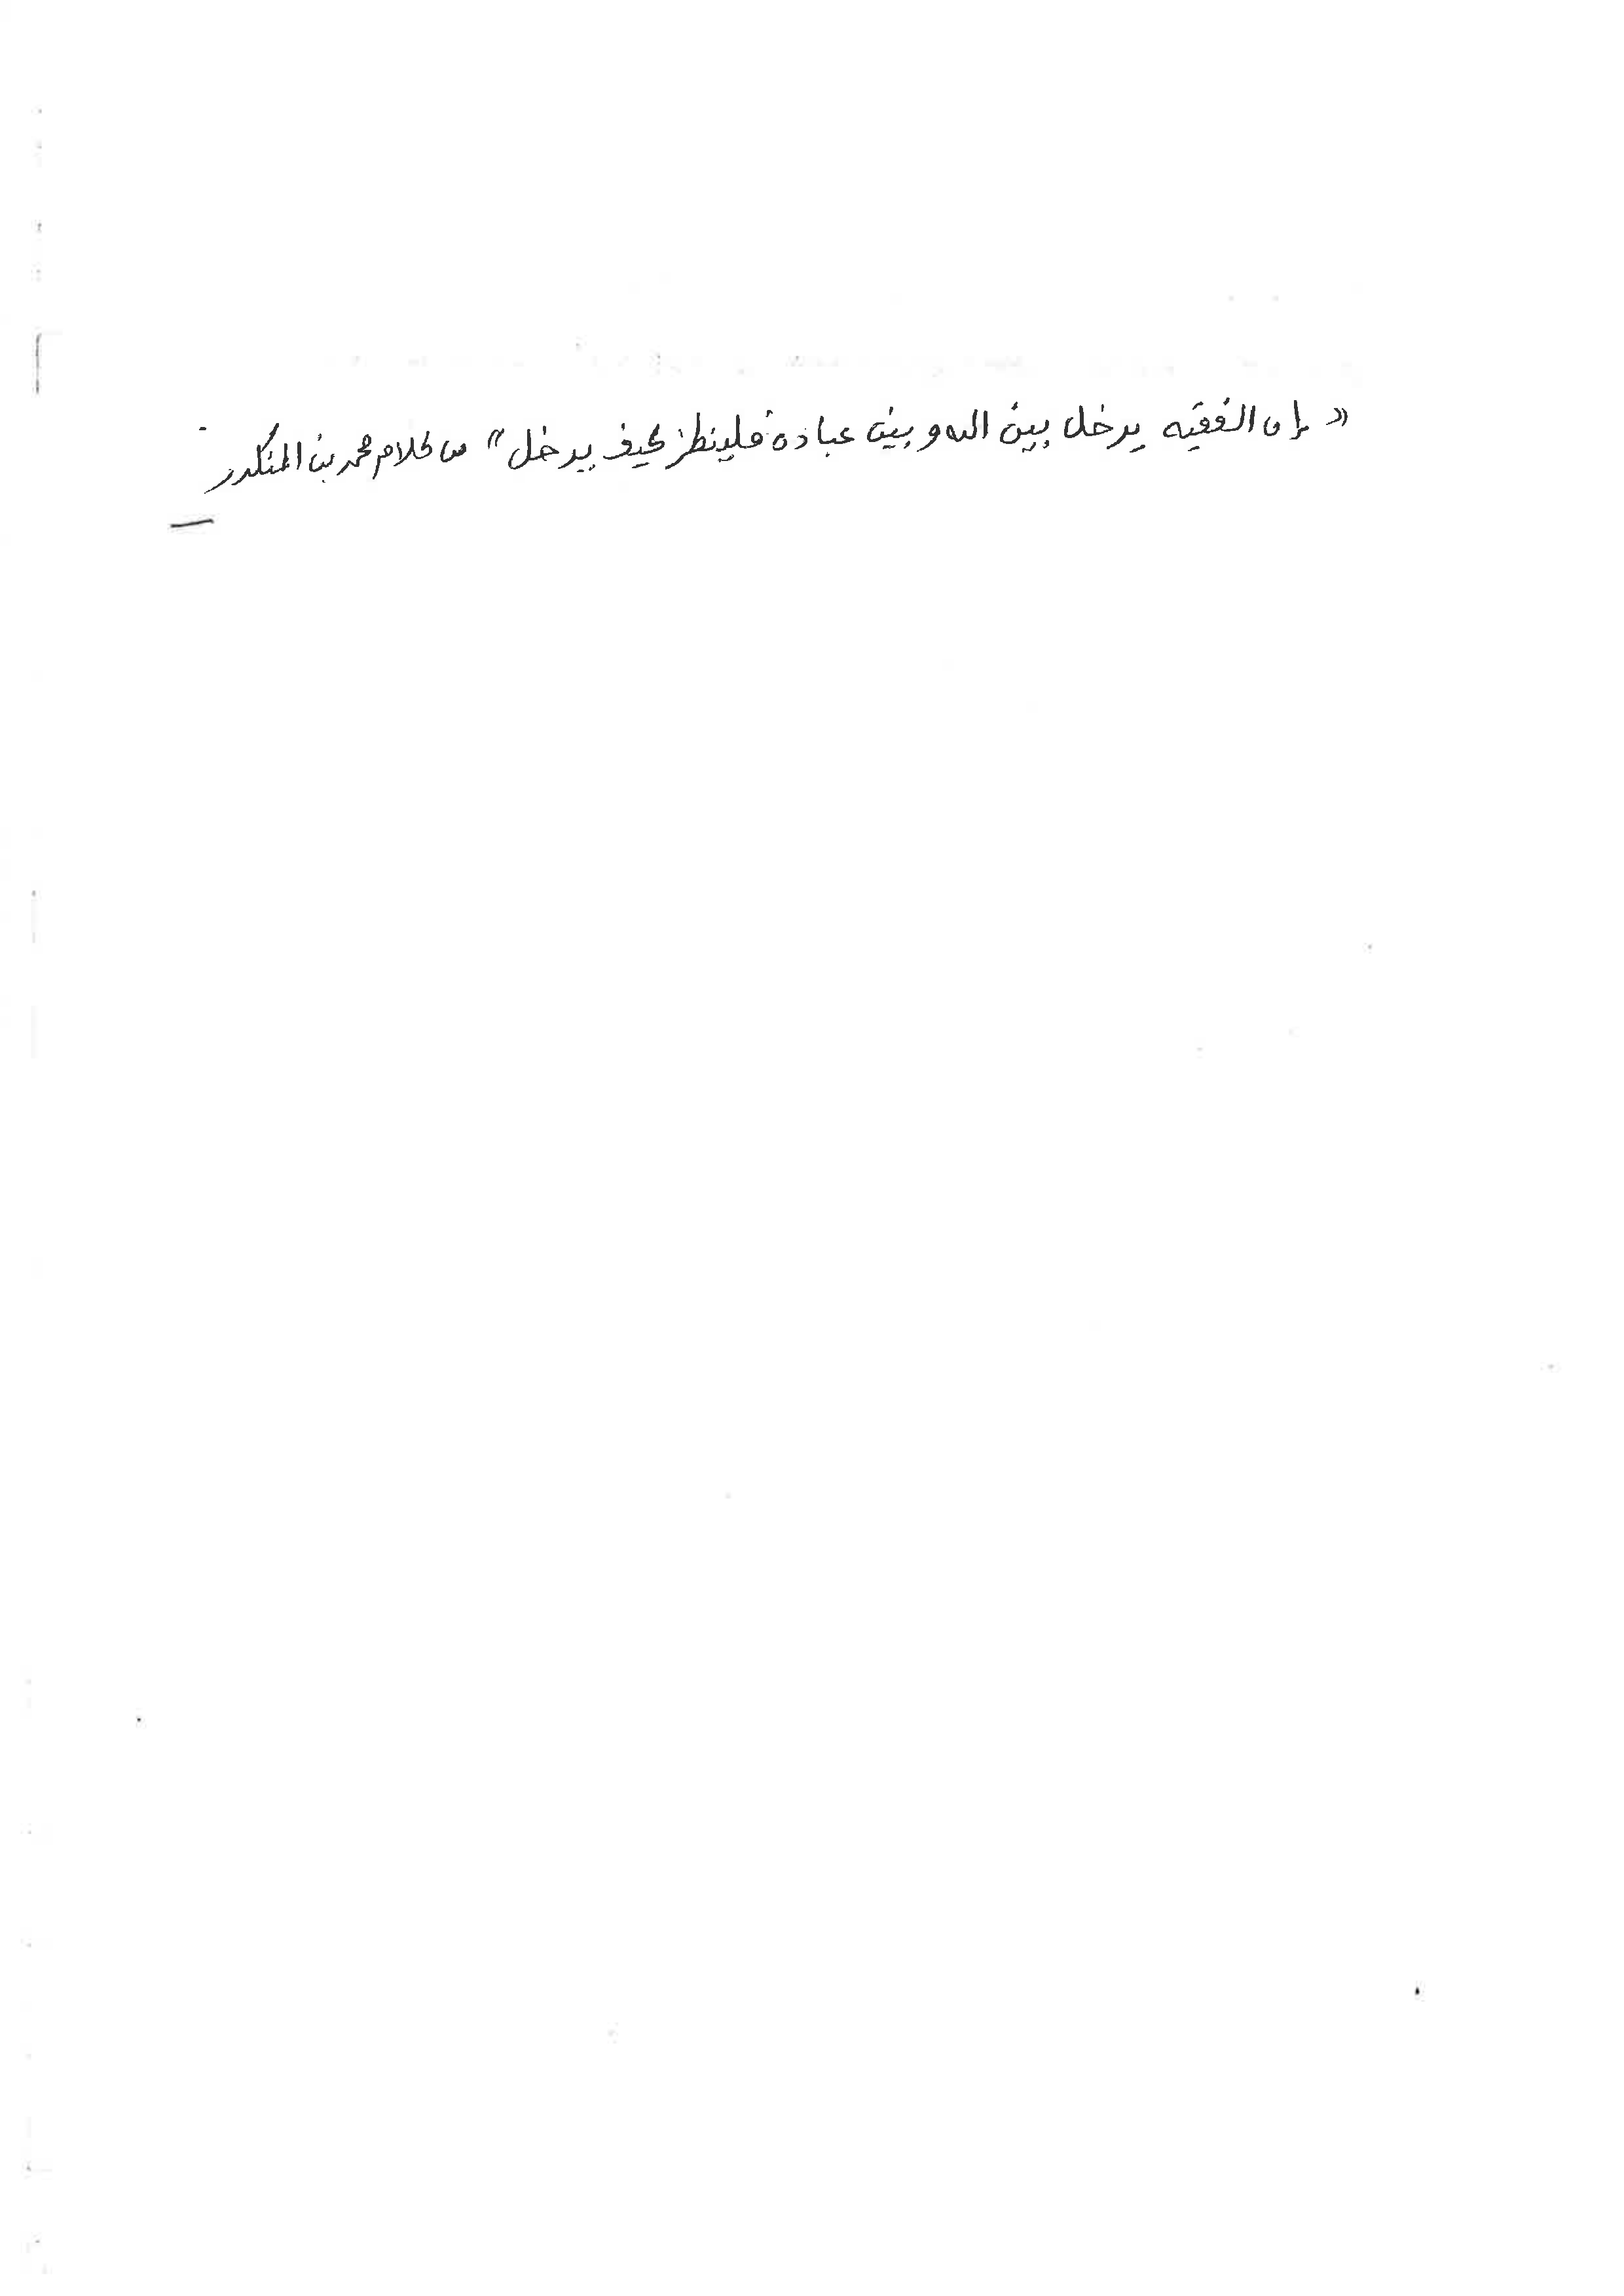 «إن الفقيه يدخل بين الله وبين عباده فلينظر كيف يدخل» من كلام محمد بن المنكدر